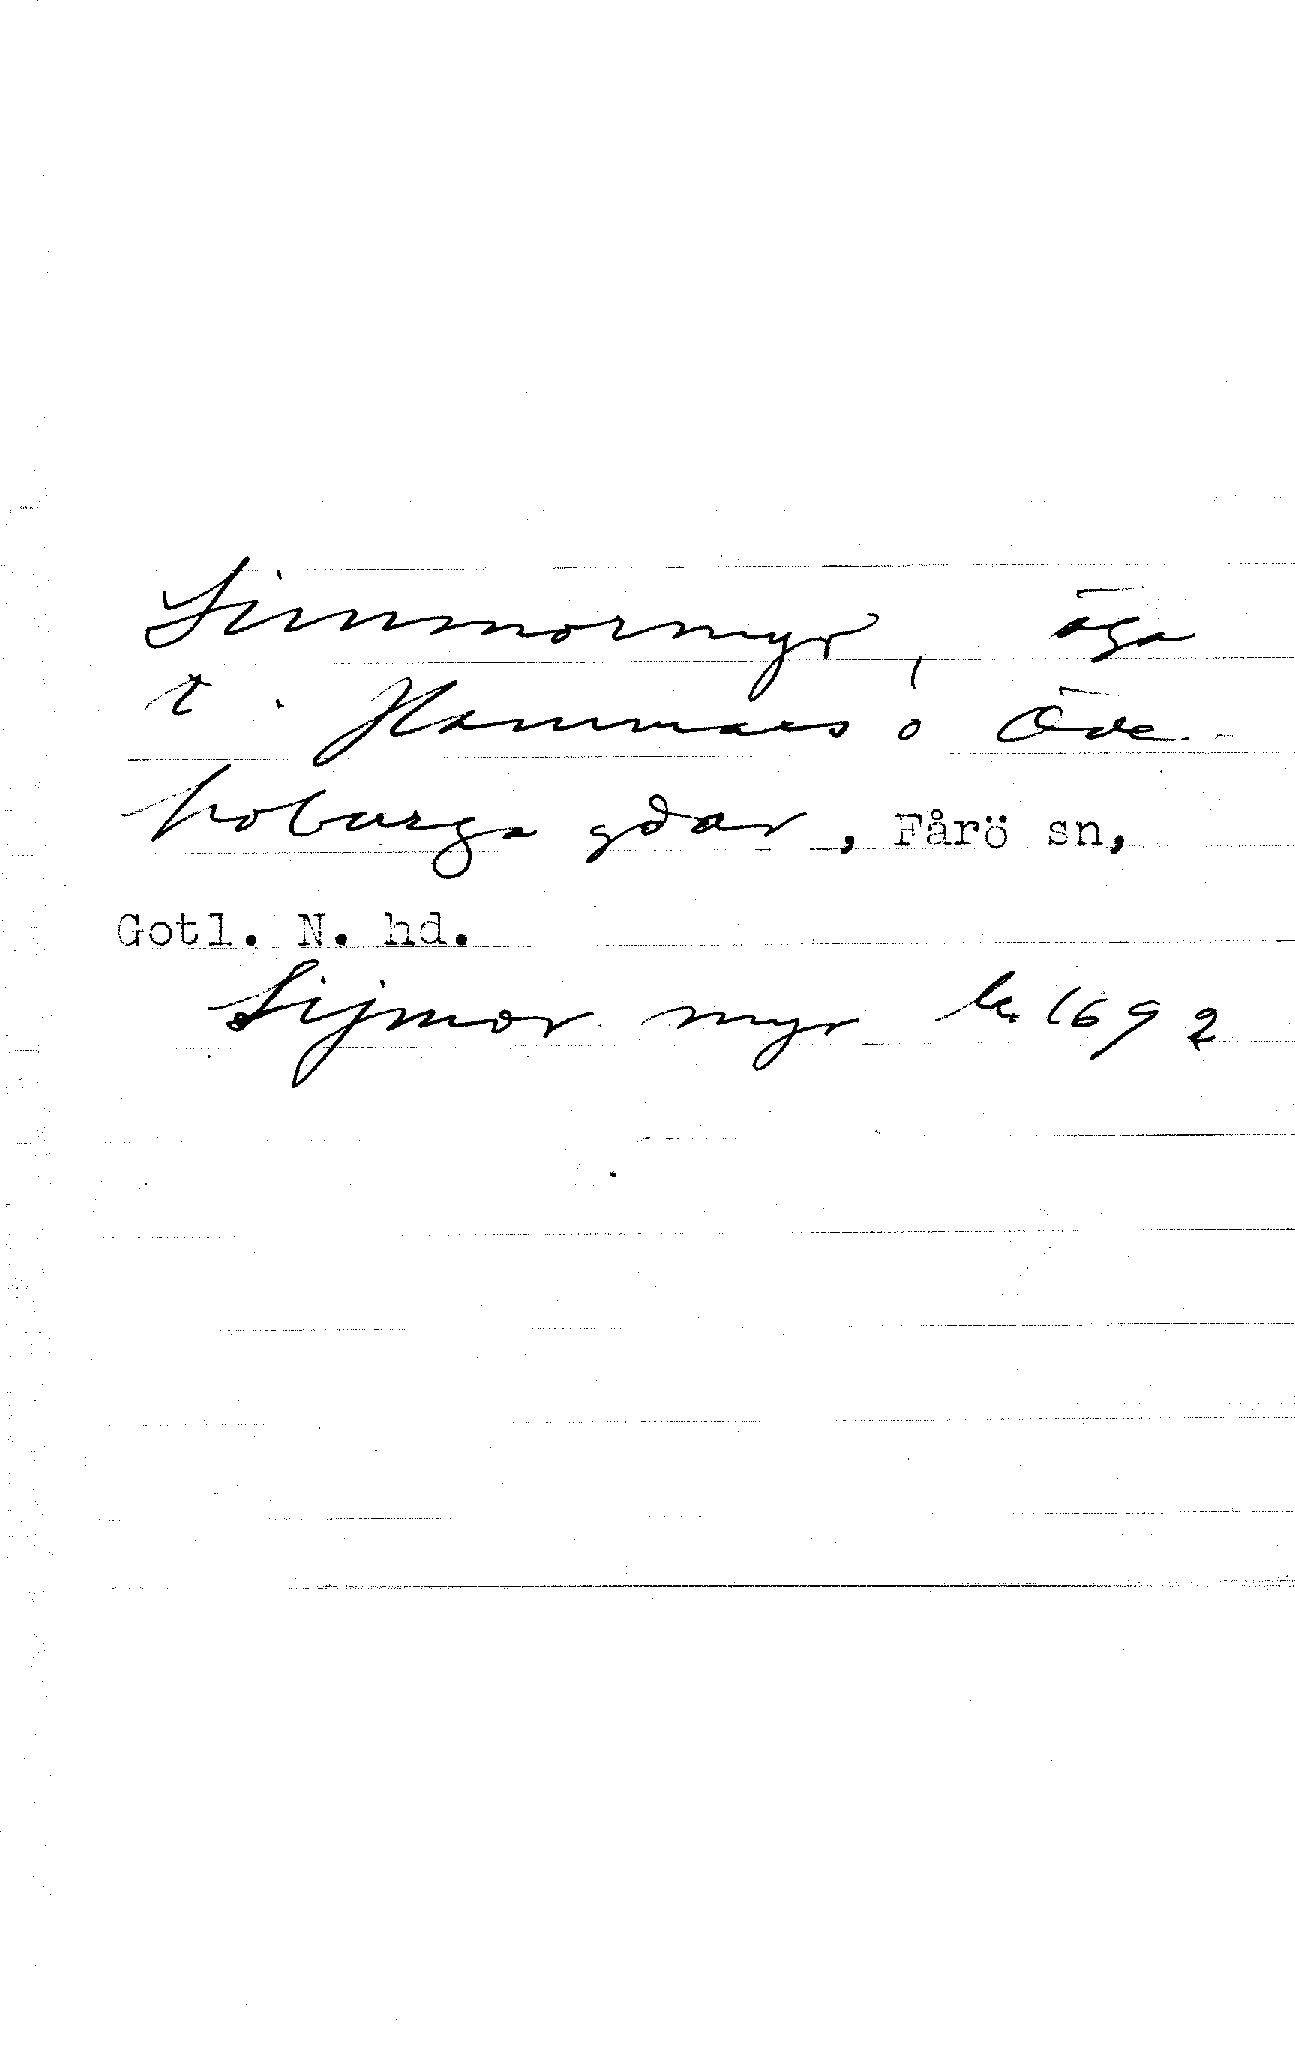 Simmormyr, äga
t. Hammars o Öde
hoburga gdar, Fårö sn,
Gotl. N. hd.
Sijmor myr k. 1692